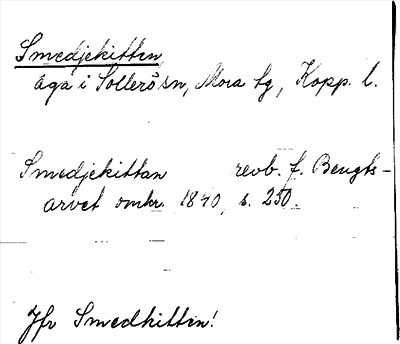 Smedjekitten,
äga i Sollerö sn, Mora tg, Kopp. l.
Smedjekittan revb. f. Bengts-
arvet omkr. 1840, s. 250.
Jfr Smedkitten!